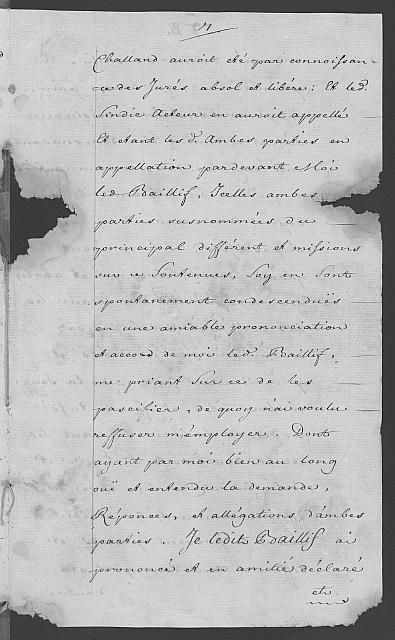 4
Challand auroit été par connoissan-
-ce des Jurés absol et libéré: Et led.
Sindic Acteur en auroit appellé
Et etant les d. Ambes parties en
appellation pardevant Moi
led. Baillif, Icelles ambes
parties susnommées du
principal différent et missions
sur ce Soutenues, Soy en Sont
spontanement condescenduës
en une amiable prononciation
et accord de moi led. Baillif,
me priant Sur ce de les
pascifier, de quoy n'ai voulu
reffuser m'employer. Dont
ayant par moi bien au long
ouï et entendu la demande,
Réponces, et allégations d'ambes
parties. Je ledit Baillif ai
prononcé et en amitié déclaré